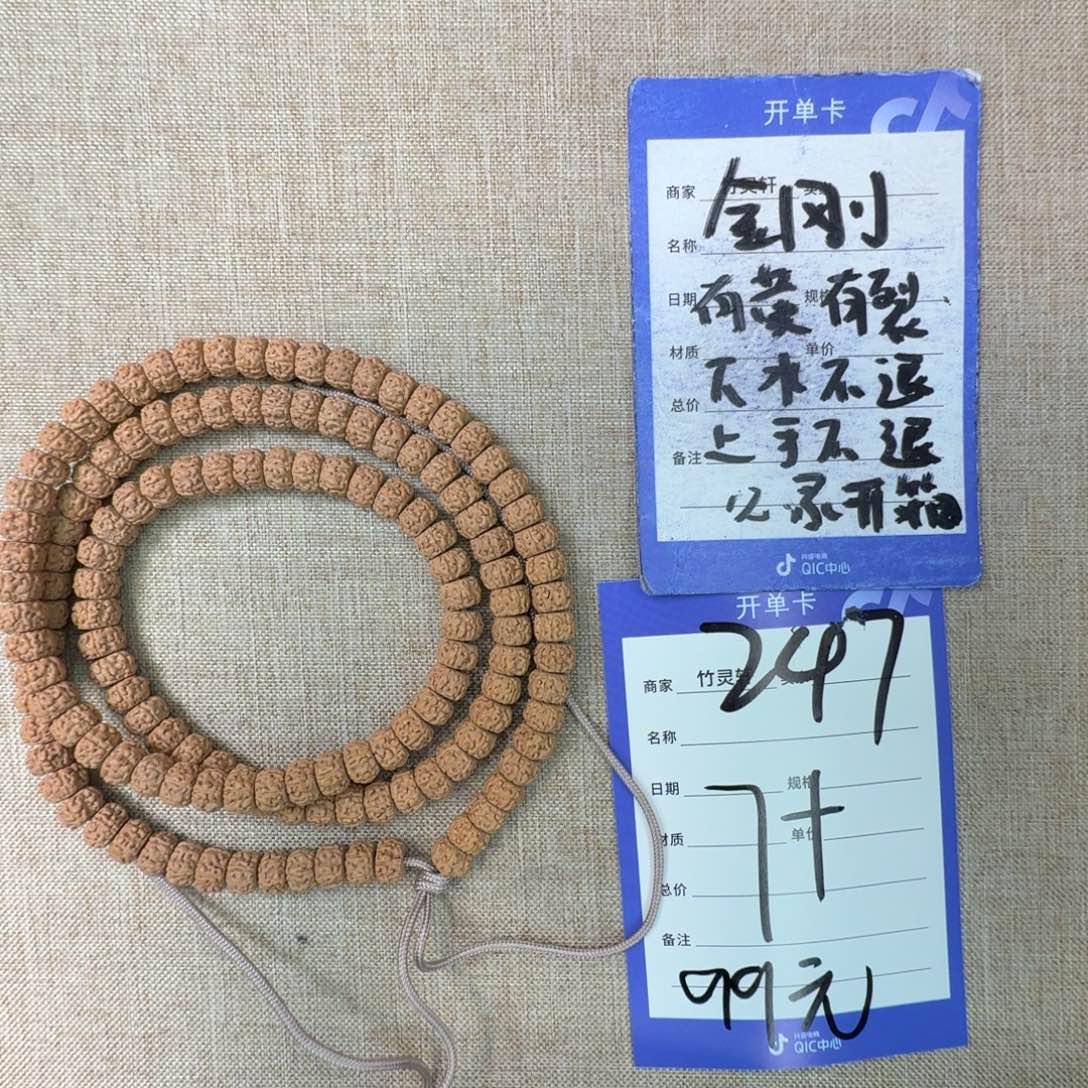 开单卡
商家 竹灵轩
名称 金刚
日期 有黄 规格 有裂
材质 单价
下水不退
总价
备注 上手不退
必录开箱
抖音电商
QIC中心
开单卡
247
商家 竹灵轩
名称
日期 规格
7十
材质 单价
总价
备注
99元
抖音电商
QIC中心